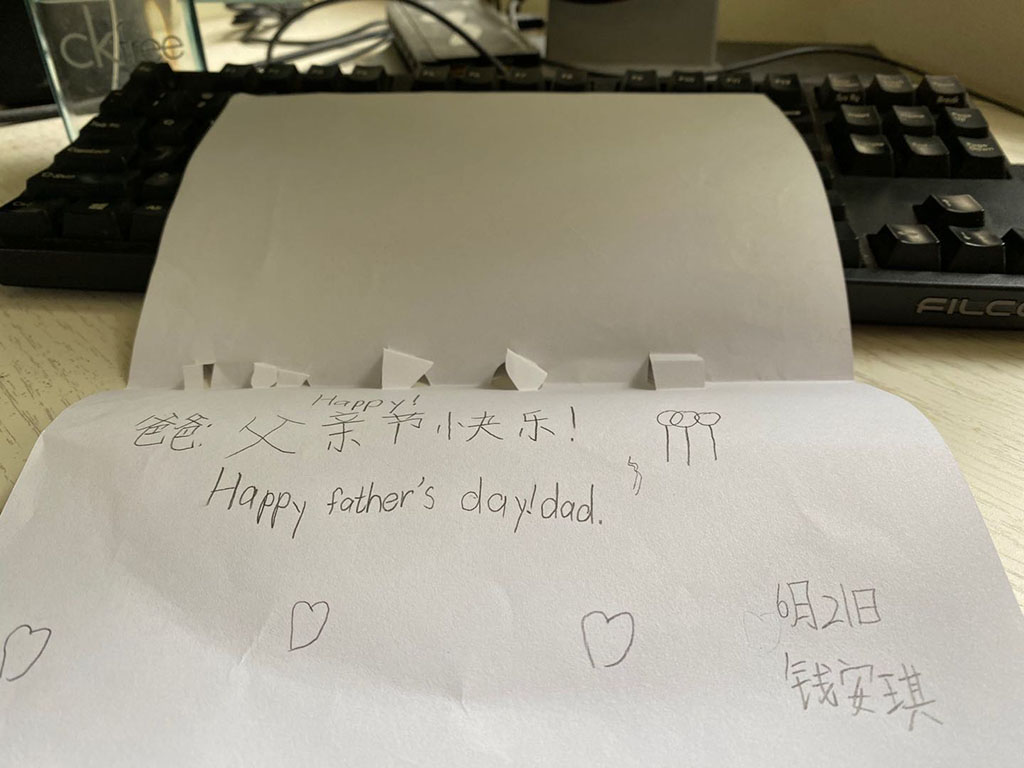 ck free
FILCO
Happy!
爸爸: 父亲节快乐!
Happy father's day! dad.
6月21日
钱安琪